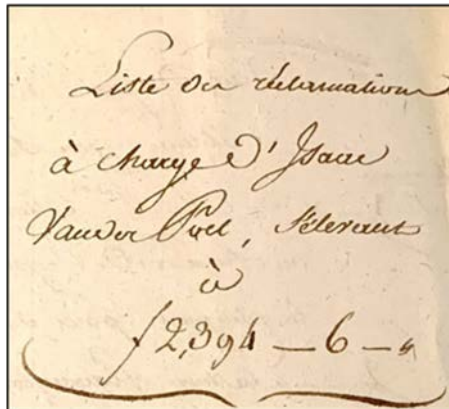 Liste des réclamations
à charge d'Isaac
Vander Poel, s'élevant
à
f 2,394 — 6 — "